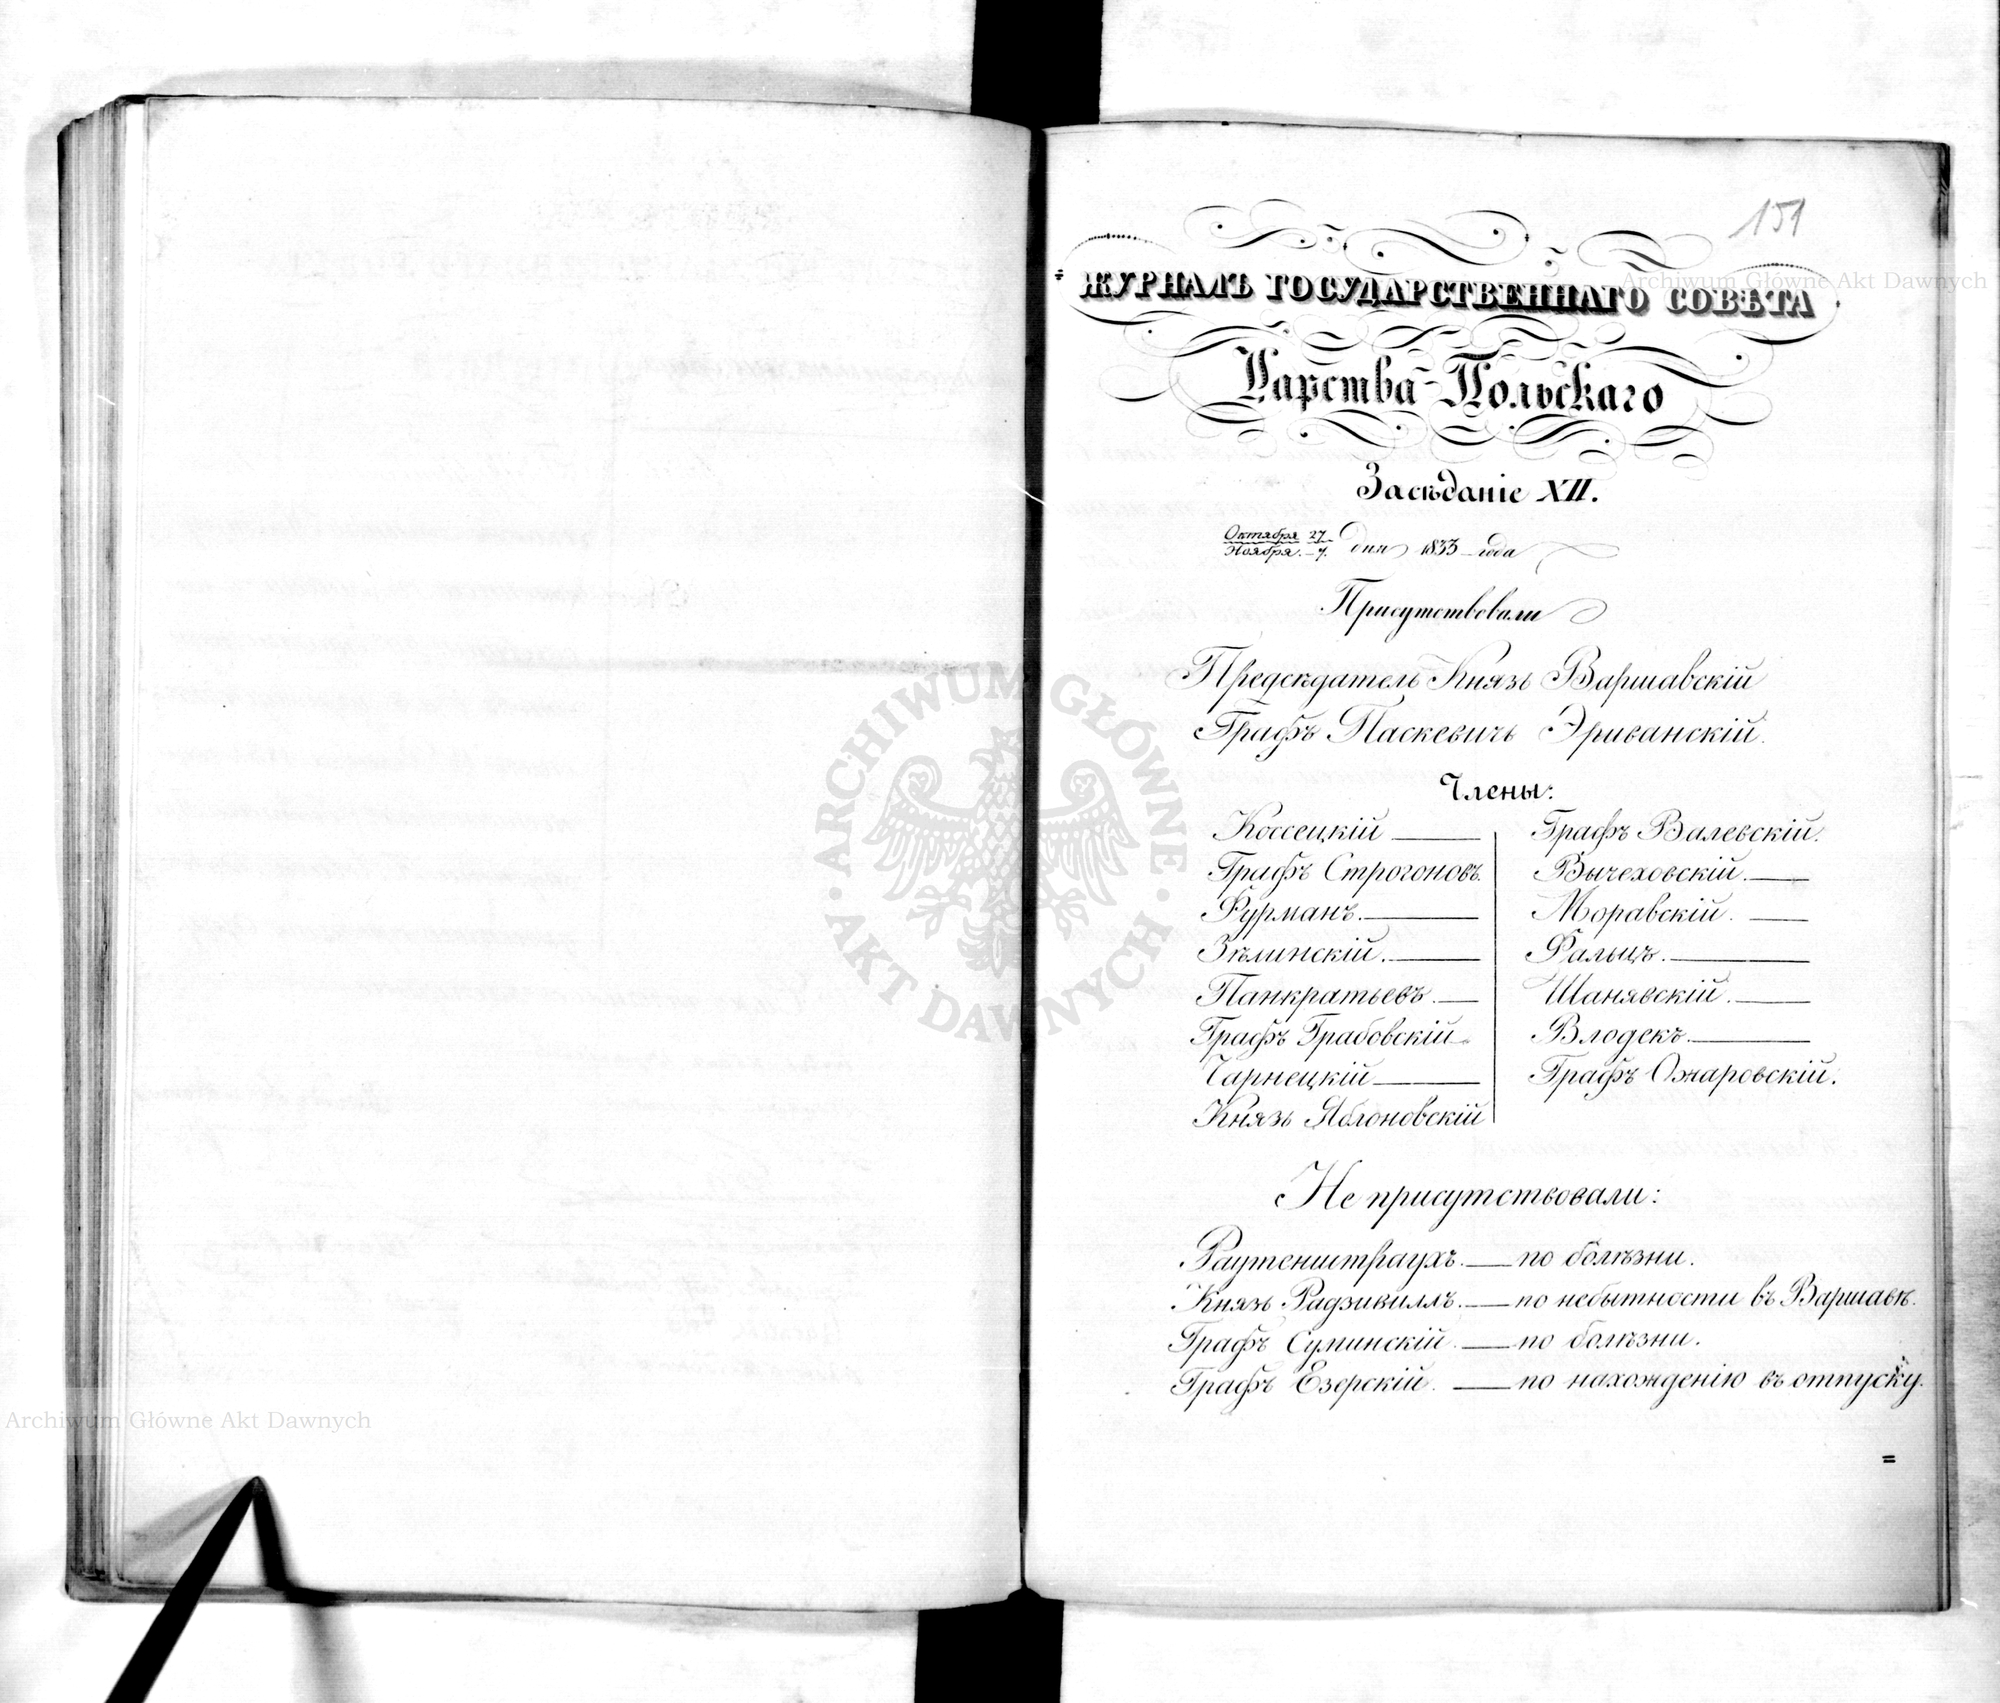 151
ЖУРНАЛЪ ГОСУДАРСТВЕННАГО СОВѢТА
Царства Польскаго
Засѣданіе XII.
Октября 27
Ноября 7. дня 1833 года
Присутствовали
Предсѣдатель Князь Варшавскій
Графъ Паскевичь Эриванскій.
Члены:
Коссецкій
Графъ Строгоновъ.
Фурманъ.
Зѣлинскій.
Панкратьевъ.
Графъ Грабовскій
Чарнецкій
Князь Яблоновскій
Графъ Валевскій.
Вычеховскій.
Моравскій.
Фальцъ.
Шанявскій.
Влодекъ.
Графъ Ожаровскій.
Не присутствовали:
Раутенштраухъ. — по болѣзни.
Князь Радзивиллъ. — по небытности въ Варшавѣ.
Графъ Суминскій. — по болѣзни.
Графъ Езерскій. — по нахожденію въ отпуску.
=
Archiwum Główne Akt Dawnych
ARCHIWUM GŁÓWNE · AKT DAWNYCH ·
Archiwum Główne Akt Dawnych